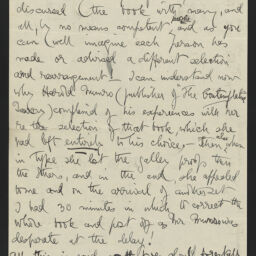 discussed (the book with many, and
all, by no means competent people, and as you
can well imagine each person has
made or advised a different selection
and rearrangement! I can understand now
why Harold Munro (publisher of "The Contemplative
) complained of his experiences with her
re the selection of that book, which she
had left entirely to his choice, – then, when
in type she lost the galley proofs then
the others, and in the end, she appealed
to me and on the arrival of another set
I had 30 minutes in which to correct the
whole book and post off as Mr
desperate at the delay!
All this is said